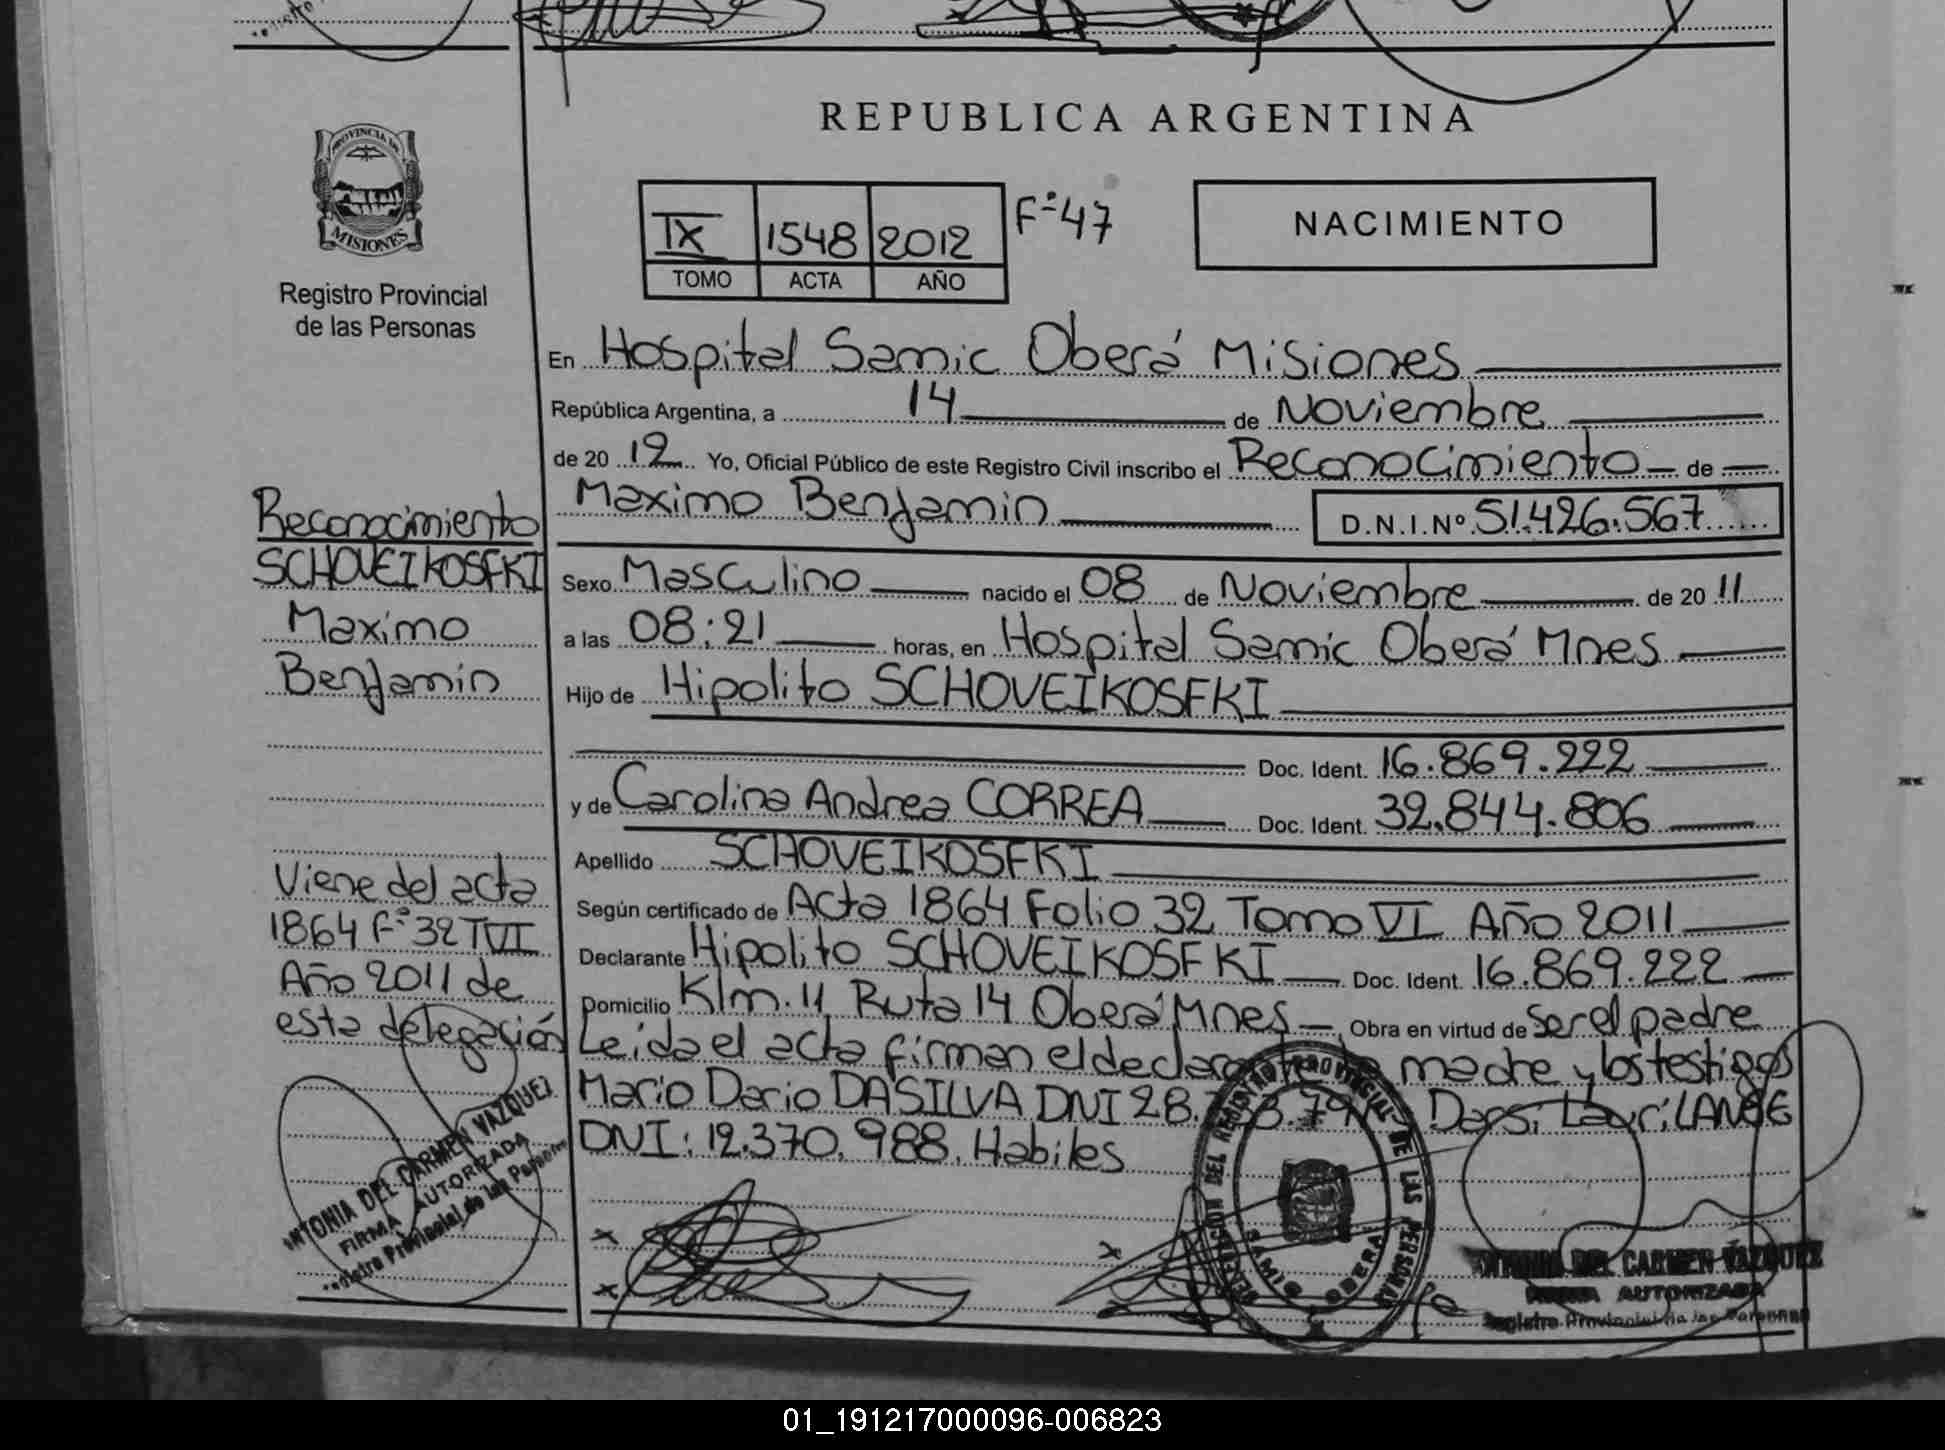 REPUBLICA ARGENTINA
PROVINCIA DE
MISIONES
Registro Provincial
de las Personas
IX 1548 2012 Fº 47
TOMO ACTA AÑO
NACIMIENTO
En Hospital Samic Oberá Misiones
República Argentina, a 14 de Noviembre
de 20 12 Yo, Oficial Público de este Registro Civil inscribo el Reconocimiento de
Maximo Benjamin D.N.I.Nº 51.426.567
Sexo Masculino nacido el 08 de Noviembre de 20 11
a las 08:21 horas, en Hospital Samic Oberá Mnes
Hijo de Hipolito SCHOVEIKOSFKI
Doc. Ident. 16.869.222
y de Carolina Andrea CORREA Doc. Ident. 32.844.806
Apellido SCHOVEIKOSFKI
Según certificado de Acta 1864 Folio 32 Tomo VI Año 2011
Declarante Hipolito SCHOVEIKOSFKI Doc. Ident. 16.869.222
Domicilio Klm. 11 Ruta 14 Oberá Mnes Obra en virtud de ser el padre
Leida el acta firman el madre y los testigos
Mario Dario DASILVA DNI 28.
DNI: 12.370.988. Habiles
Reconocimiento
SCHOVEIKOSFKI
Maximo
Benjamin
Viene del acta
1864 Fº 32 TVI
Año 2011 de
esta delegación
ANTONIA DEL CARMEN VAZQUEZ
FIRMA AUTORIZADA
Registro Provincial de las Personas
DELEGACION DEL REGISTRO PROVINCIAL DE LAS PERSONAS
SAMIC OBERA
ANTONIA DEL CARMEN VAZQUEZ
FIRMA AUTORIZADA
Registro Provincial de las Personas
01_191217000096-006823